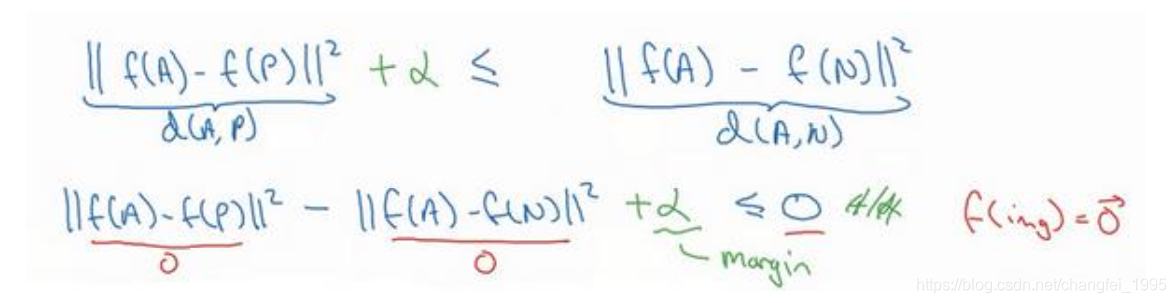 ||f(A) - f(P)||² + α ≤ ||f(A) - f(N)||²
d(A,P) d(A,N)
||f(A)-f(P)||² - ||f(A)-f(N)||² + α ≤ 0 f(img) = 0⃗
0 0 margin
https://blog.csdn.net/changfei_1995